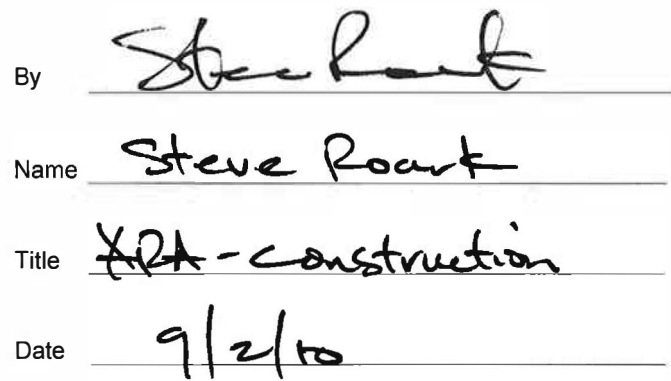 By Steve Roark
Name Steve Roark
Title - Construction
Date 9/2/10